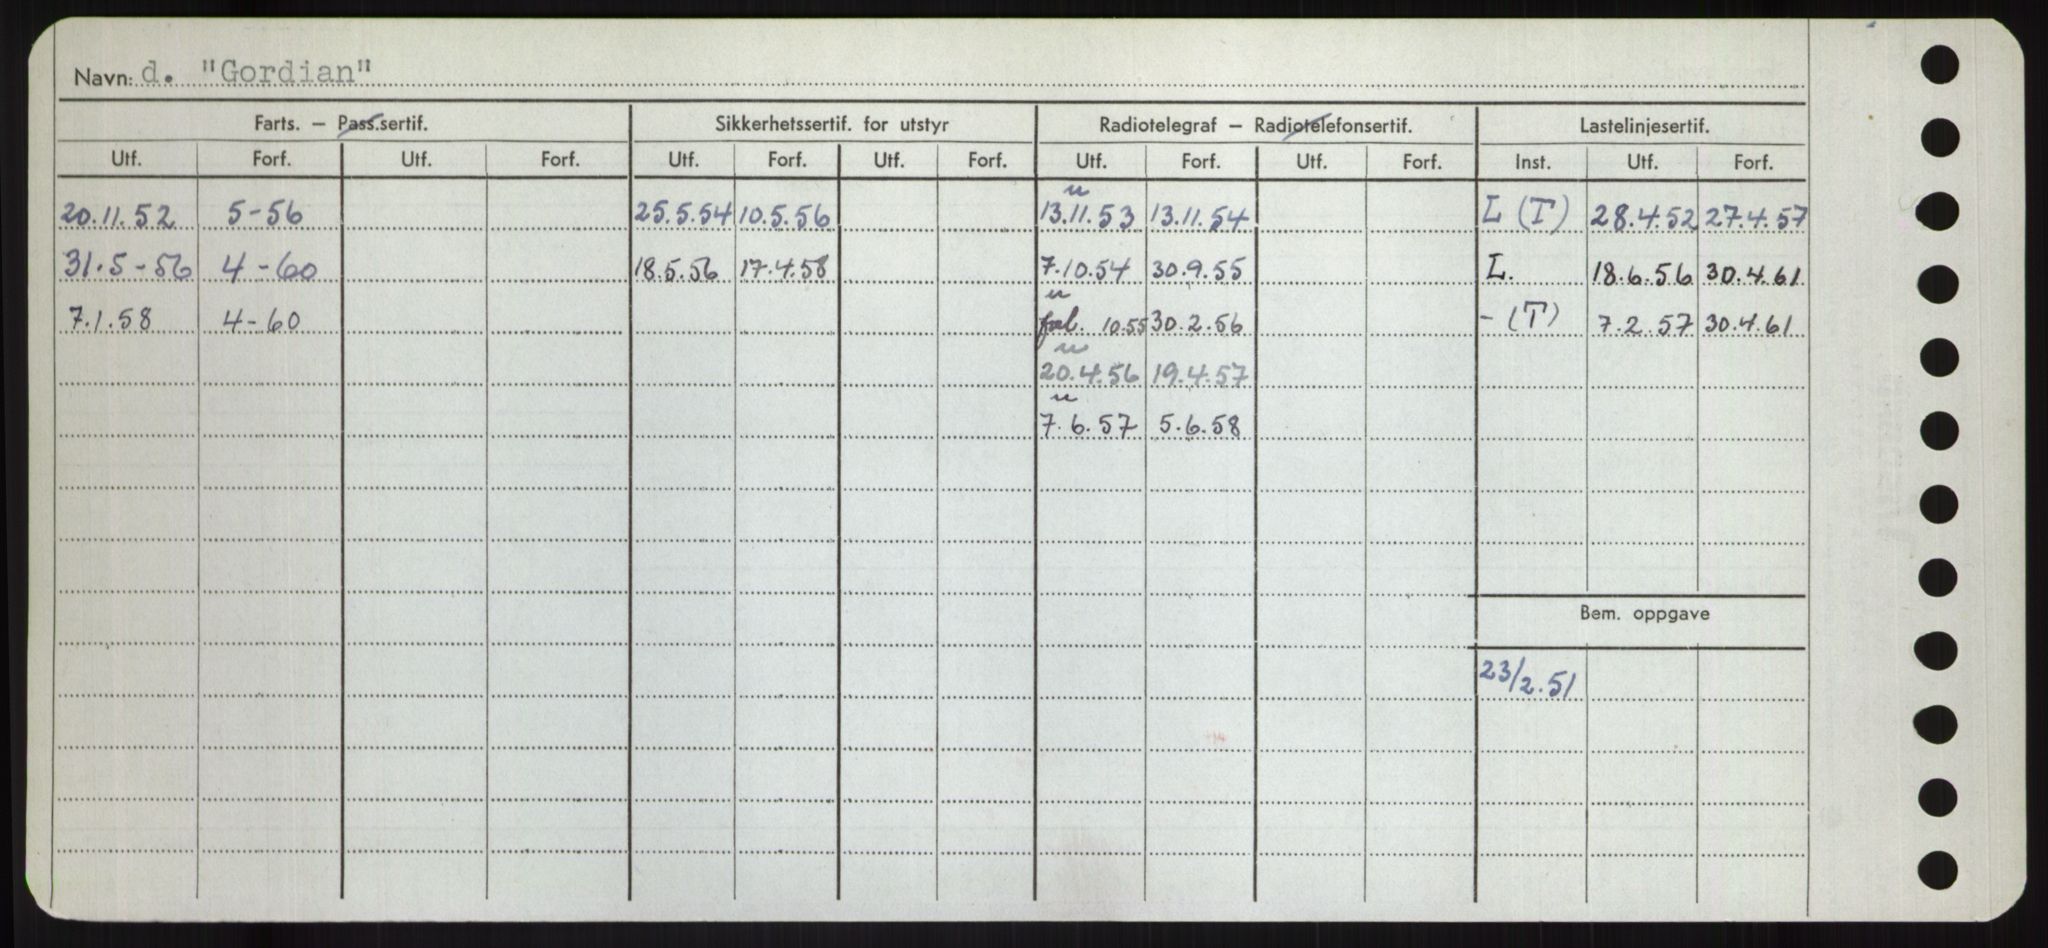 Navn: d. "Gordian"
Farts. – Pass.sertif. Sikkerhetssertif. for utstyr Radiotelegraf – Radiotelefonsertif. Lastelinjesertif.
Utf. Forf. Utf. Forf. Utf. Forf. Utf. Forf. Utf. Forf. Utf. Forf. Inst. Utf. Forf.
u
20.11.52 5-56 25.5.54 10.5.56 13.11.53 13.11.54 L (T) 28.4.52 27.4.57
31.5-56 4-60 18.5.56 17.4.58 7.10.54 30.9.55 L. 18.6.56 30.4.61
u
7.1.58 4-60 10.55 30.2.56 - (T) 7.2.57 30.4.61
u
20.4.56 19.4.57
u
7.6.57 5.6.58
Bem. oppgave
23/2.51